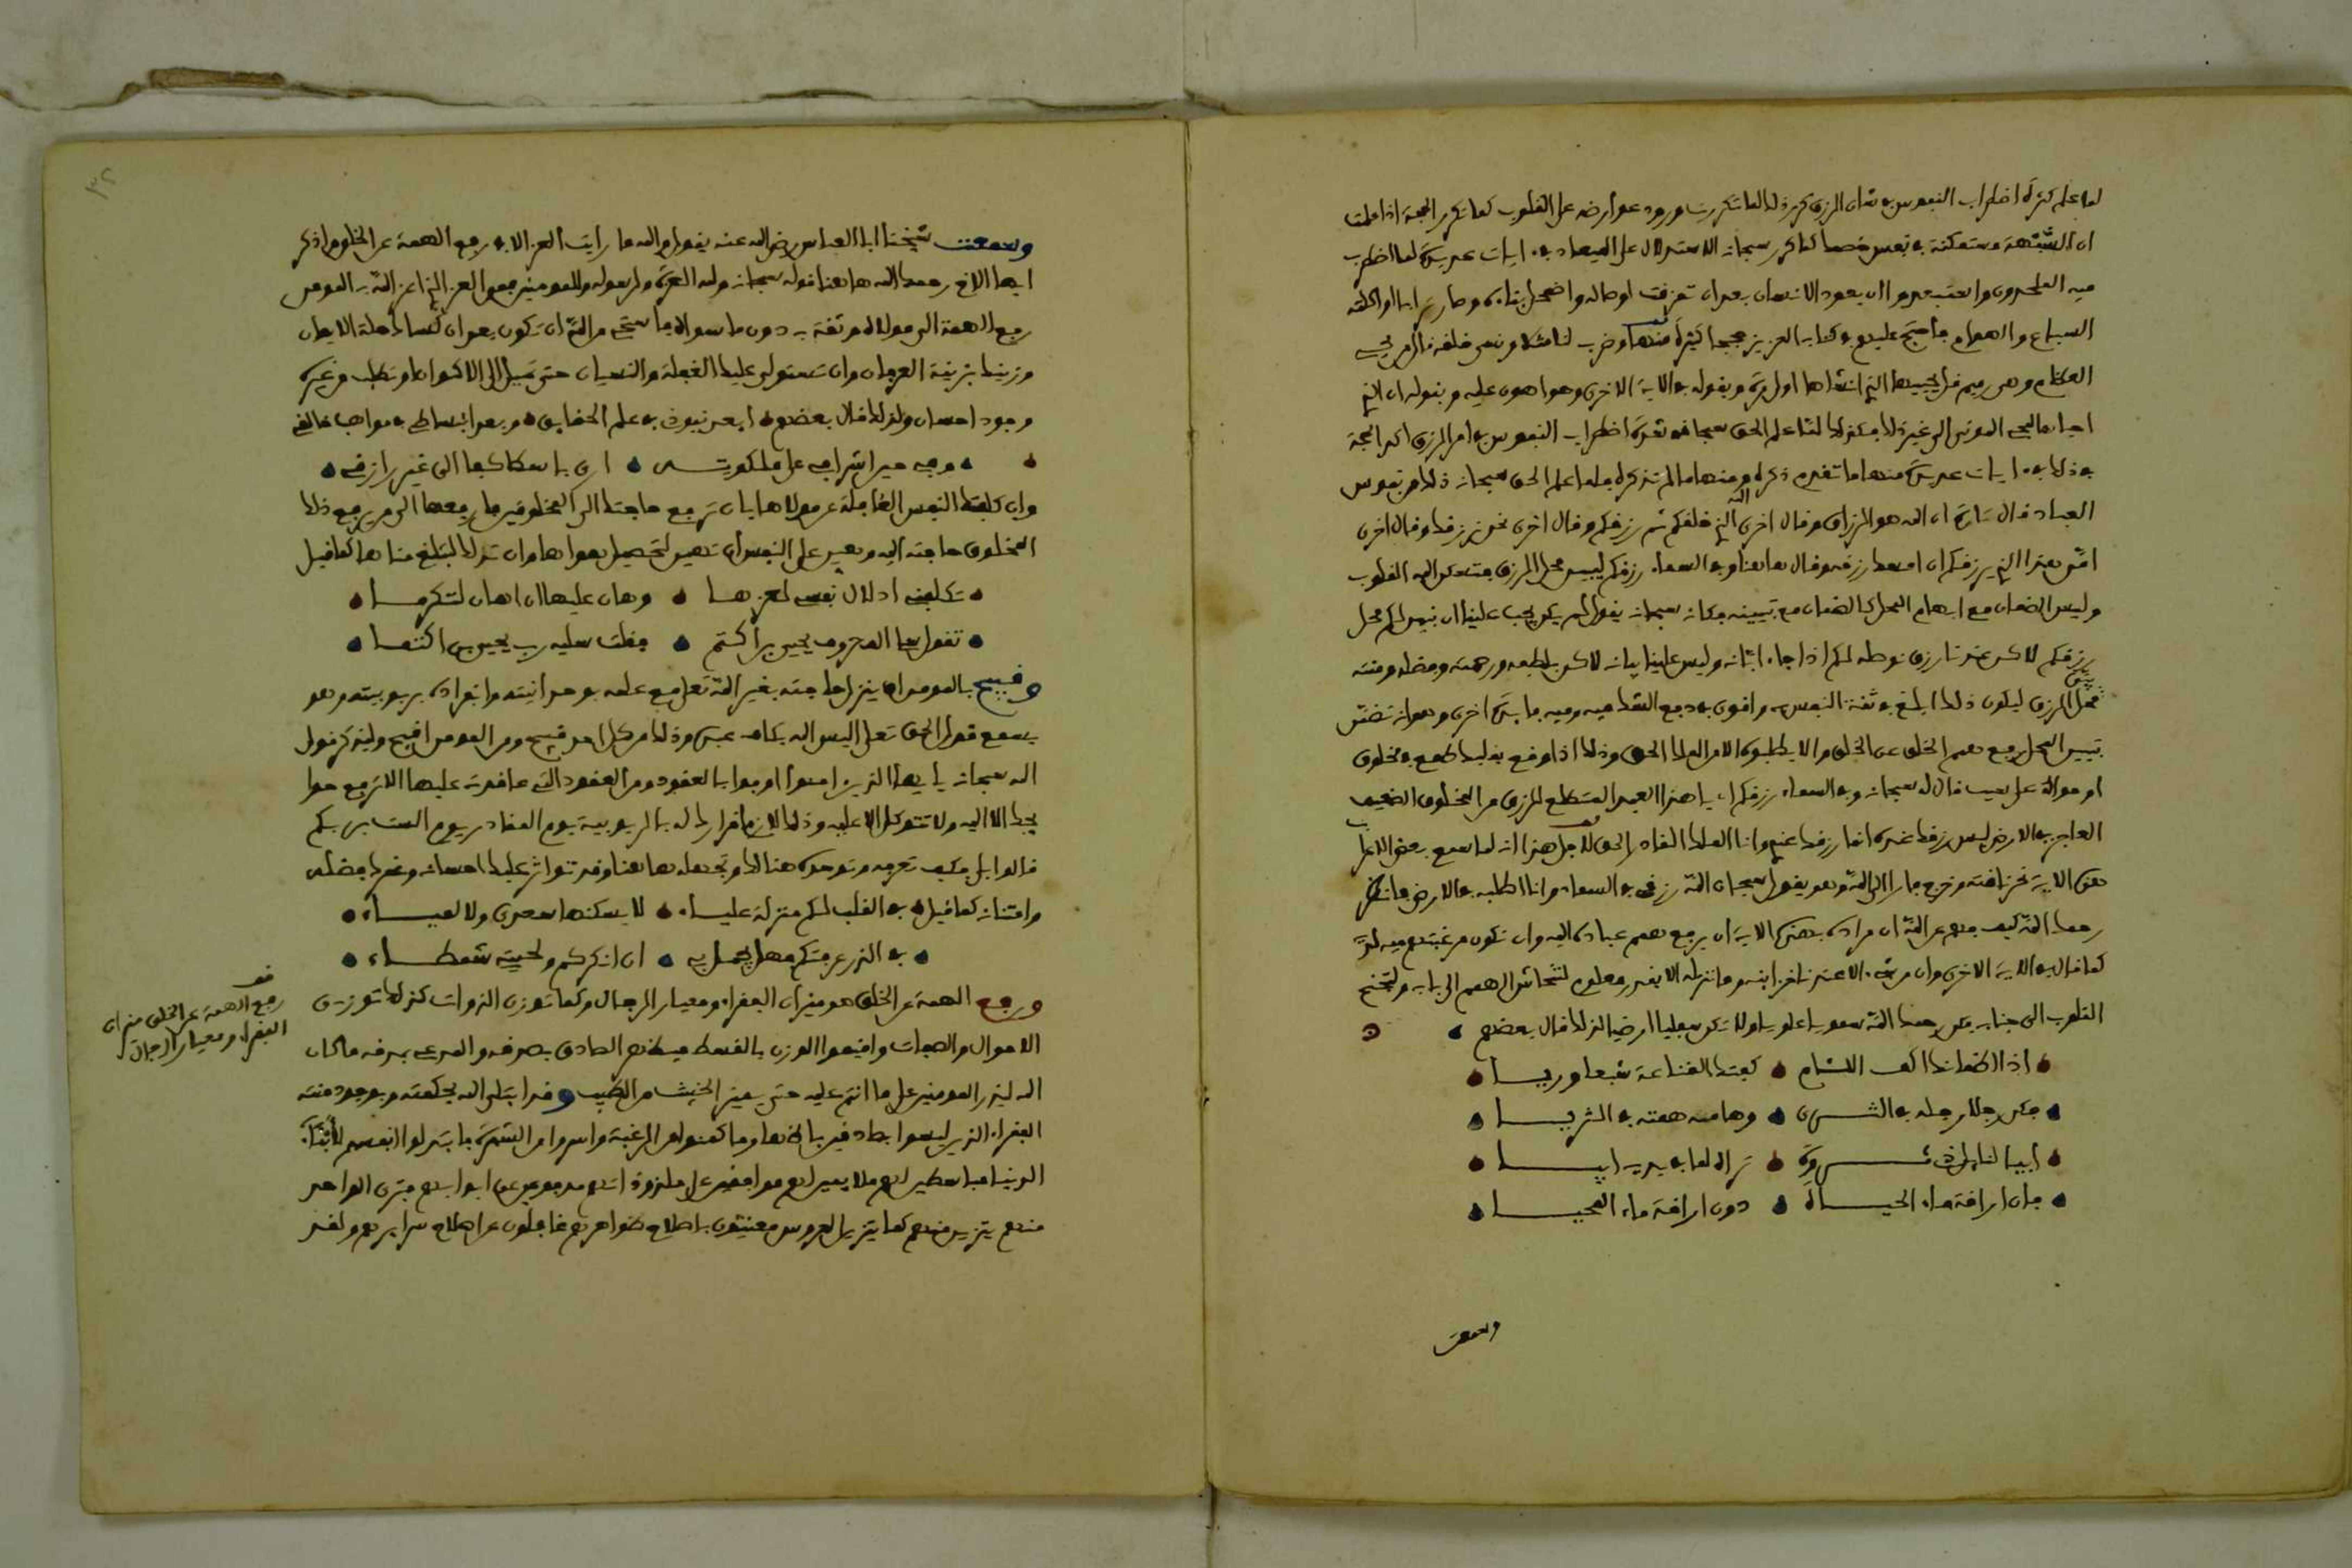 لما علم كثرة اضطراب النفوس في شان الرزق كرر ذلك لما تكررت ورود عوارضه على القلوب كما تكرر الحجة اذا علمت
ان الشبهة متمكنة في نفس خصمك كما كرر سبحانه الاستدلال على المعاد في ايات عديدة لما اضطرب
فيه الملحدون واستبعدوا ان يعود الانسان بعد ان تمزقت اوصاله واضمحل بناه وصار ترابا او اكلته
السباع والهوام فاحتج عليهم في كتابه العزيز حججا كثيرة منها وضرب لنا مثلا ونسي خلقه قال من يحيي
العظام وهي رميم قل يحييها الذي انشاها اول مرة وبقوله في الاية الاخرى وهو اهون عليه وبقوله ان الذي
احياها لمحيي الموتى الى غير ذلك فكذلك لما علم الحق سبحانه شدة اضطراب النفوس في امر الرزق اكد الحجة
في ذلك في ايات عديدة منها ما تقدم ذكره ومنها ما لم نذكره فلما علم الحق سبحانه ذلك من نفوس
العباد قال تارة ان الله هو الرزاق وقال اخرى الله الذي خلقكم ثم رزقكم وقال اخرى نحن نرزقك وقال اخرى
امن هذا الذي يرزقكم ان امسك رزقه وقال هاهنا وفي السماء رزقكم ليبين محل الرزق فتسكن اليه القلوب
وليس الضمان مع ابهام المحل كالضمان مع تبيينه فكانه سبحانه يقول لم يكن يجب علينا ان نبين لكم محل
رزقكم لاكن عندنا رزق نوصله لكم اذا جاء ابانه وليس علينا بيانه لاكن بلطفه ورحمته وفضله ومنته
بين محل الرزق ليكون ذلك ابلغ في ثقة النفوس به واقوى في دفع الشك فيه وفيه فايدة اخرى وهو انه تضمن
تبيين المحل رفع همم الخلق عن الخلق والا يطلبوه الا من الملك الحق وذلك اذا وقع بقلبك طمع في مخلوق
او حوالة على سبب قال له سبحانه وفي السماء رزقكم اي يا هذا العبد المتطلع للرزق من المخلوق الضعيف
العاجز في الارض ليس رزقك عنده انما رزقك عندي وانا الملك القادر الحق لاجل هذا انه لما سمع بعض الاعراب
هذه الاية نحر ناقته وخرج فارا الى الله وهو يقول سبحان الله رزقي في السماء وانا اطلبه في الارض فانظر
رحمك الله كيف فهم عن الله ان مراده بهذه الاية ان يرفع همم عباده اليه وان تكون رغبتهم فيه لديه
كما قال في الاية الاخرى وان من شيء الا عندنا خزاينه وما ننزله الا بقدر معلوم لتنحاش الهمم الى بابه ولتجنح
القلوب الى جنابه فكن رحمك الله سماويا علويا ولا تكن سفليا ارضيا لذلك قال بعضهم
اذا اظماتك اكف اللئام كفتك القناعة شبعا وريا
فكن رجلا رجله في الثرى وهامة همته في الثريا
ابيا لنايل ذي ثروة تراه لما في يديه ابيا
فان اراقة ماء الحياة دون اراقة ماء المحيا
وسمعت
٣٢
وسمعت شيخنا ابا العباس رضي الله عنه يقول والله ما رايت العز الا في رفع الهمة عن الخلق واذكر
ايها الاخ رحمك الله هاهنا قوله سبحانه ولله العزة ولرسوله وللمومنين فمن العز الذي اعز الله به المومن
رفع الهمة الى مولاه وثقته به دون ما سواه فاستحي من الله ان تكون بعد ان كساك حلة الايمان
وزينك بزينة العرفان وان تستولي عليك الغفلة والنسيان حتى تميل الى الاكوان او تطلب من غيره
وجود احسان ولذلك قال بعضهم ابعد نفوذي في علم الحقايق وبعد انبساطي في مواهب خالقي
وفي حين اشرافي على ملكوته ارى باسطا كفا الى غير رازقي
وان كلفتك النفس الغافلة عن مولاها بان ترفع حاجتك الى المخلوقين فارفعها الى من يرفع ذلك
المخلوق حاجته اليه وهين على النفس ان تهين لتحصيل هواها وان تذلك لتبلغ مناها كما قيل
تكلفني اذلال نفسي لعزها وهان عليها ان اهان لتكرما
تقول سل المعروف يحيى بن اكثم فقلت سليه رب يحيى بن اكثما
وقبيح بالمومن ان ينزل حاجته بغير الله تعلى مع علمه بوحدانيته وانفراده بربوبيته وهو
يسمع قول الحق تعلى اليس الله بكاف عبده وذلك من كل احد قبيح ومن المومن اقبح وليذكر قول
الله سبحانه يا يها الذين امنوا اوفوا بالعقود ومن العقود التي عاقدته عليها الا ترفع حوا
يجك الا اليه ولا تتوكل الا عليه وذلك لازم اقرارك له بالربوبية يوم المقادير يوم الست بربكم
قالوا بلى فكيف تعرفه وتوحده هنالك وتجهله هاهنا وقد تواتر عليك احسانه وغمرك فضله
وامتنانه كما قيل في القلب لكم منزلة علياء لا يسكنها سعدى ولا لمياء
في الذر عرفتكم فهل يجمل بي ان انكركم ولحيتي شمطاء
ورفع الهمة عن الخلق هو ميزان الفقراء ومعيار الرجال وكما توزن الذوات كذلك توزن
الاحوال والصفات واقيموا الوزن بالقسط فيظهر الصادق بصدقه والمدعي بمذقه ما كان
الله ليذر المومنين على ما انتم عليه حتى يميز الخبيث من الطيب وقد ابتلى الله بحكمته وبوجود منته
الفقراء الذين ليسوا بصادقين باظهار ما كمنوا من الرغبة واسروا من الشهوة فابتذلوا انفسهم لابناء
الدنيا مباسطين لهم ملايمين لهم موافقين على ملذوذاتهم مدفوعين على ابوابهم فترى الواحد
منهم يتزين كما تتزين العروس معتنون باصلاح ظواهرهم غافلون عن اصلاح سرايرهم ولقد
قف
رفع الهمة عن الخلق ميزان
الفقراء ومعيار الرجال